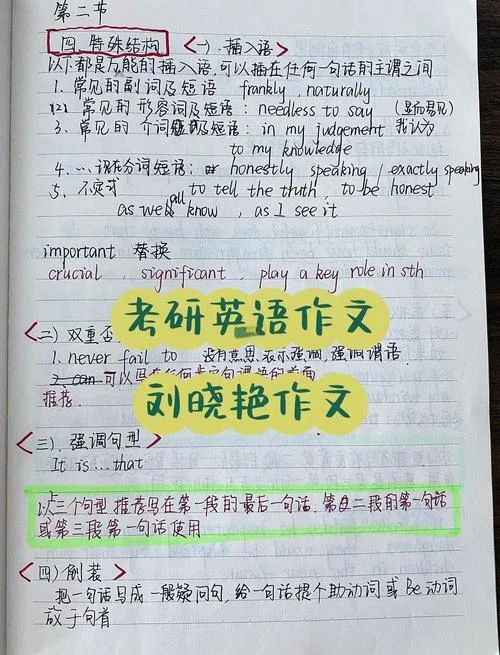 第二节
四、特殊结构 <一>.插入语>
以下都是万能的插入语,可以插在任何一句话的主谓之间
1. 常见的副词及短语 frankly, naturally
12) 常见的形容词及短语: needless to say (显而易见)
3. 常见的介词及短语: in my judgement 我认为
to my knowledge
4. ... 现在分词短语: honestly speaking / exactly speaking
5. 不定式 to tell the truth, to be honest
as we all know , as I see it
important 替换
crucial , significant , play a key role in sth
考研英语作文
<二>双重否
1. never fail to 没有意思.表示强调,强调谓语.
2 can 可以
推荐.
刘晓艳作文
<三>.强调句型>
It is ... that
以上三个句型 推荐写在第一段的最后一句话.第二段的第一句话
或第三段第一句话使用
<四>倒装>
把一句话写成一般疑问句,给一句话提个助动词或 Be 动词
放于句首